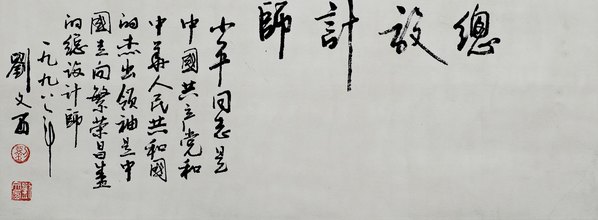 總設計師
小平同志是
中國共产党和
中華人民共和國
的杰出领袖是中
國走向繁荣昌盛
的總設計師
一九九八年
劉文西